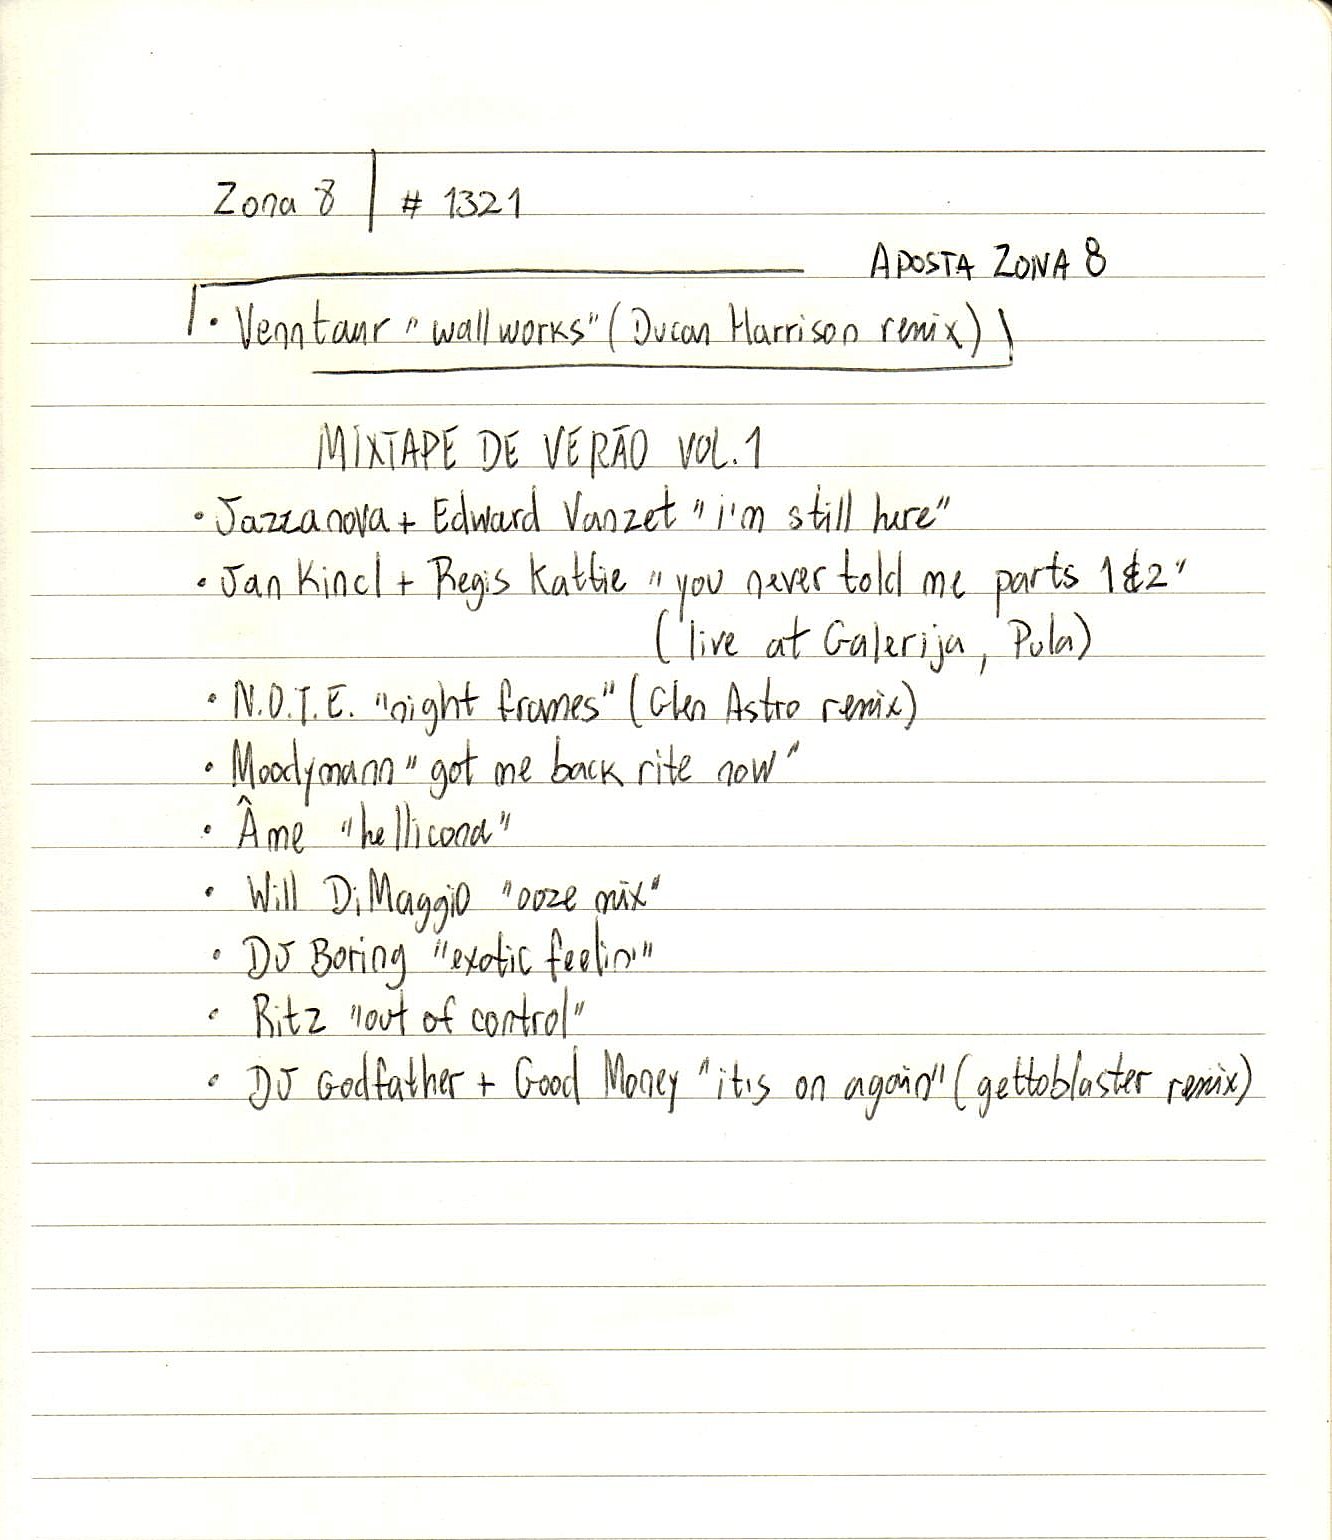 Zona 8 | # 1321
APOSTA ZONA 8
• Venntaur "wallworks" (Ducan Harrison remix)
MIXTAPE DE VERÃO VOL.1
• Jazzanova + Edward Vanzet "i'm still here"
• Jan Kincl + Regis Kattie "you never told me parts 1&2"
(live at Galerija, Pula)
• N.O.T.E. "night frames" (Glen Astro remix)
• Moodymann "got me back rite now"
• Âme "hellicona"
• Will DiMaggio "ooze mix"
• DJ Boring "exotic feelin'"
• Ritz "out of control"
• DJ Godfather + Good Money "it's on again" (gettoblaster remix)